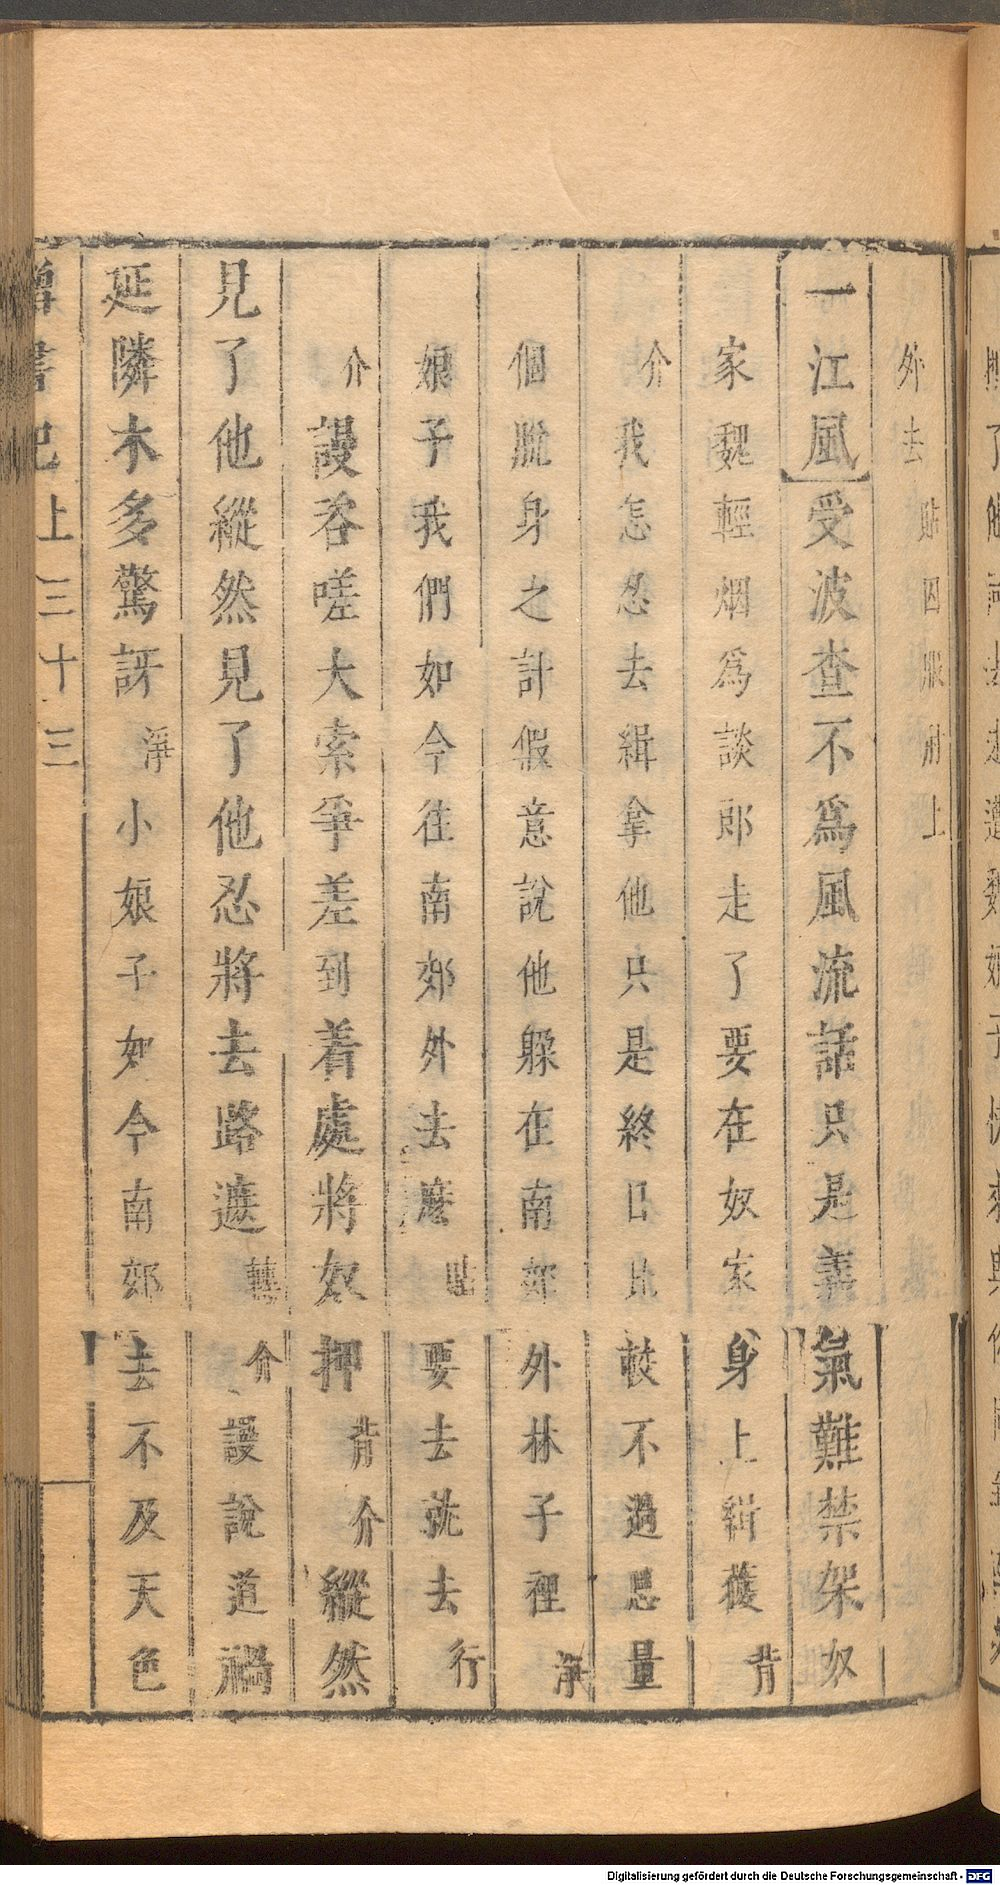 外去 貼囚服肘上
一江風受波查不爲風流話只是義氣難禁架奴
家魏輕烟爲談郎走了要在奴家身上緝獲背
介我怎忍去緝拿他只是終日比較不過思量
個脫身之計假意說他躱在南郊外林子裡淨
娘子我們如今往南郊外去麽貼要去就去行
介謾吞嗟大索爭差到着處將奴押背介縱然
見了他縱然見了他忍將去路遮轉介謾說道禍
延隣木多驚訝淨小娘子如今南郊去不及天色
書記上 三十三
Digitalisierung gefördert durch die Deutsche Forschungsgemeinschaft - DFG